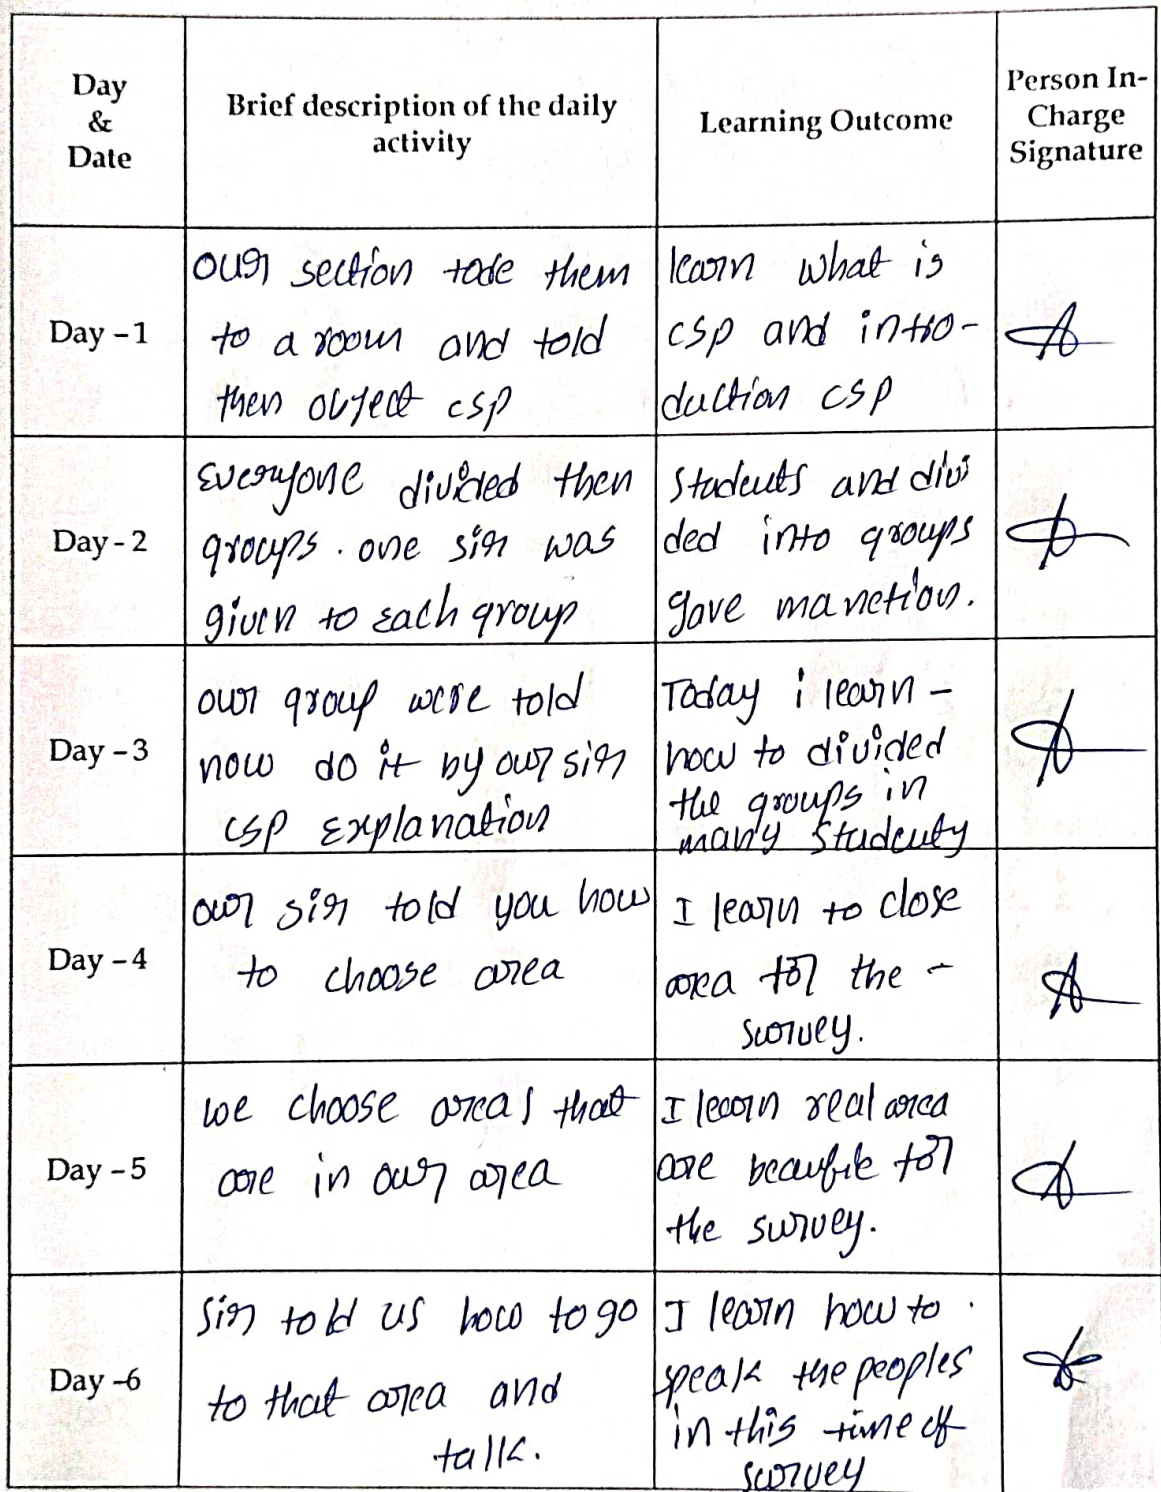 Day
&
Date
Brief description of the daily
activity
Learning Outcome
Person In-
Charge
Signature
Day - 1
our section tode them
to a room and told
then object csp
learn what is
csp and intro-
duction csp
Day - 2
Everyone divided then
groups. one sir was
given to each group
Students and divi
ded into groups
gave manetion.
Day - 3
our group were told
now do it by our sir
csp Explanation
Today i learn -
how to divided
the groups in
many Students
Day - 4
our sir told you how
to choose area
I learn to close
area for the -
survey.
Day - 5
we choose areas that
are in our area
I learn real area
are for
the survey.
Day -6
Sir told us how to go
to that area and
talk.
I learn how to
speak the peoples
in this time of
survey